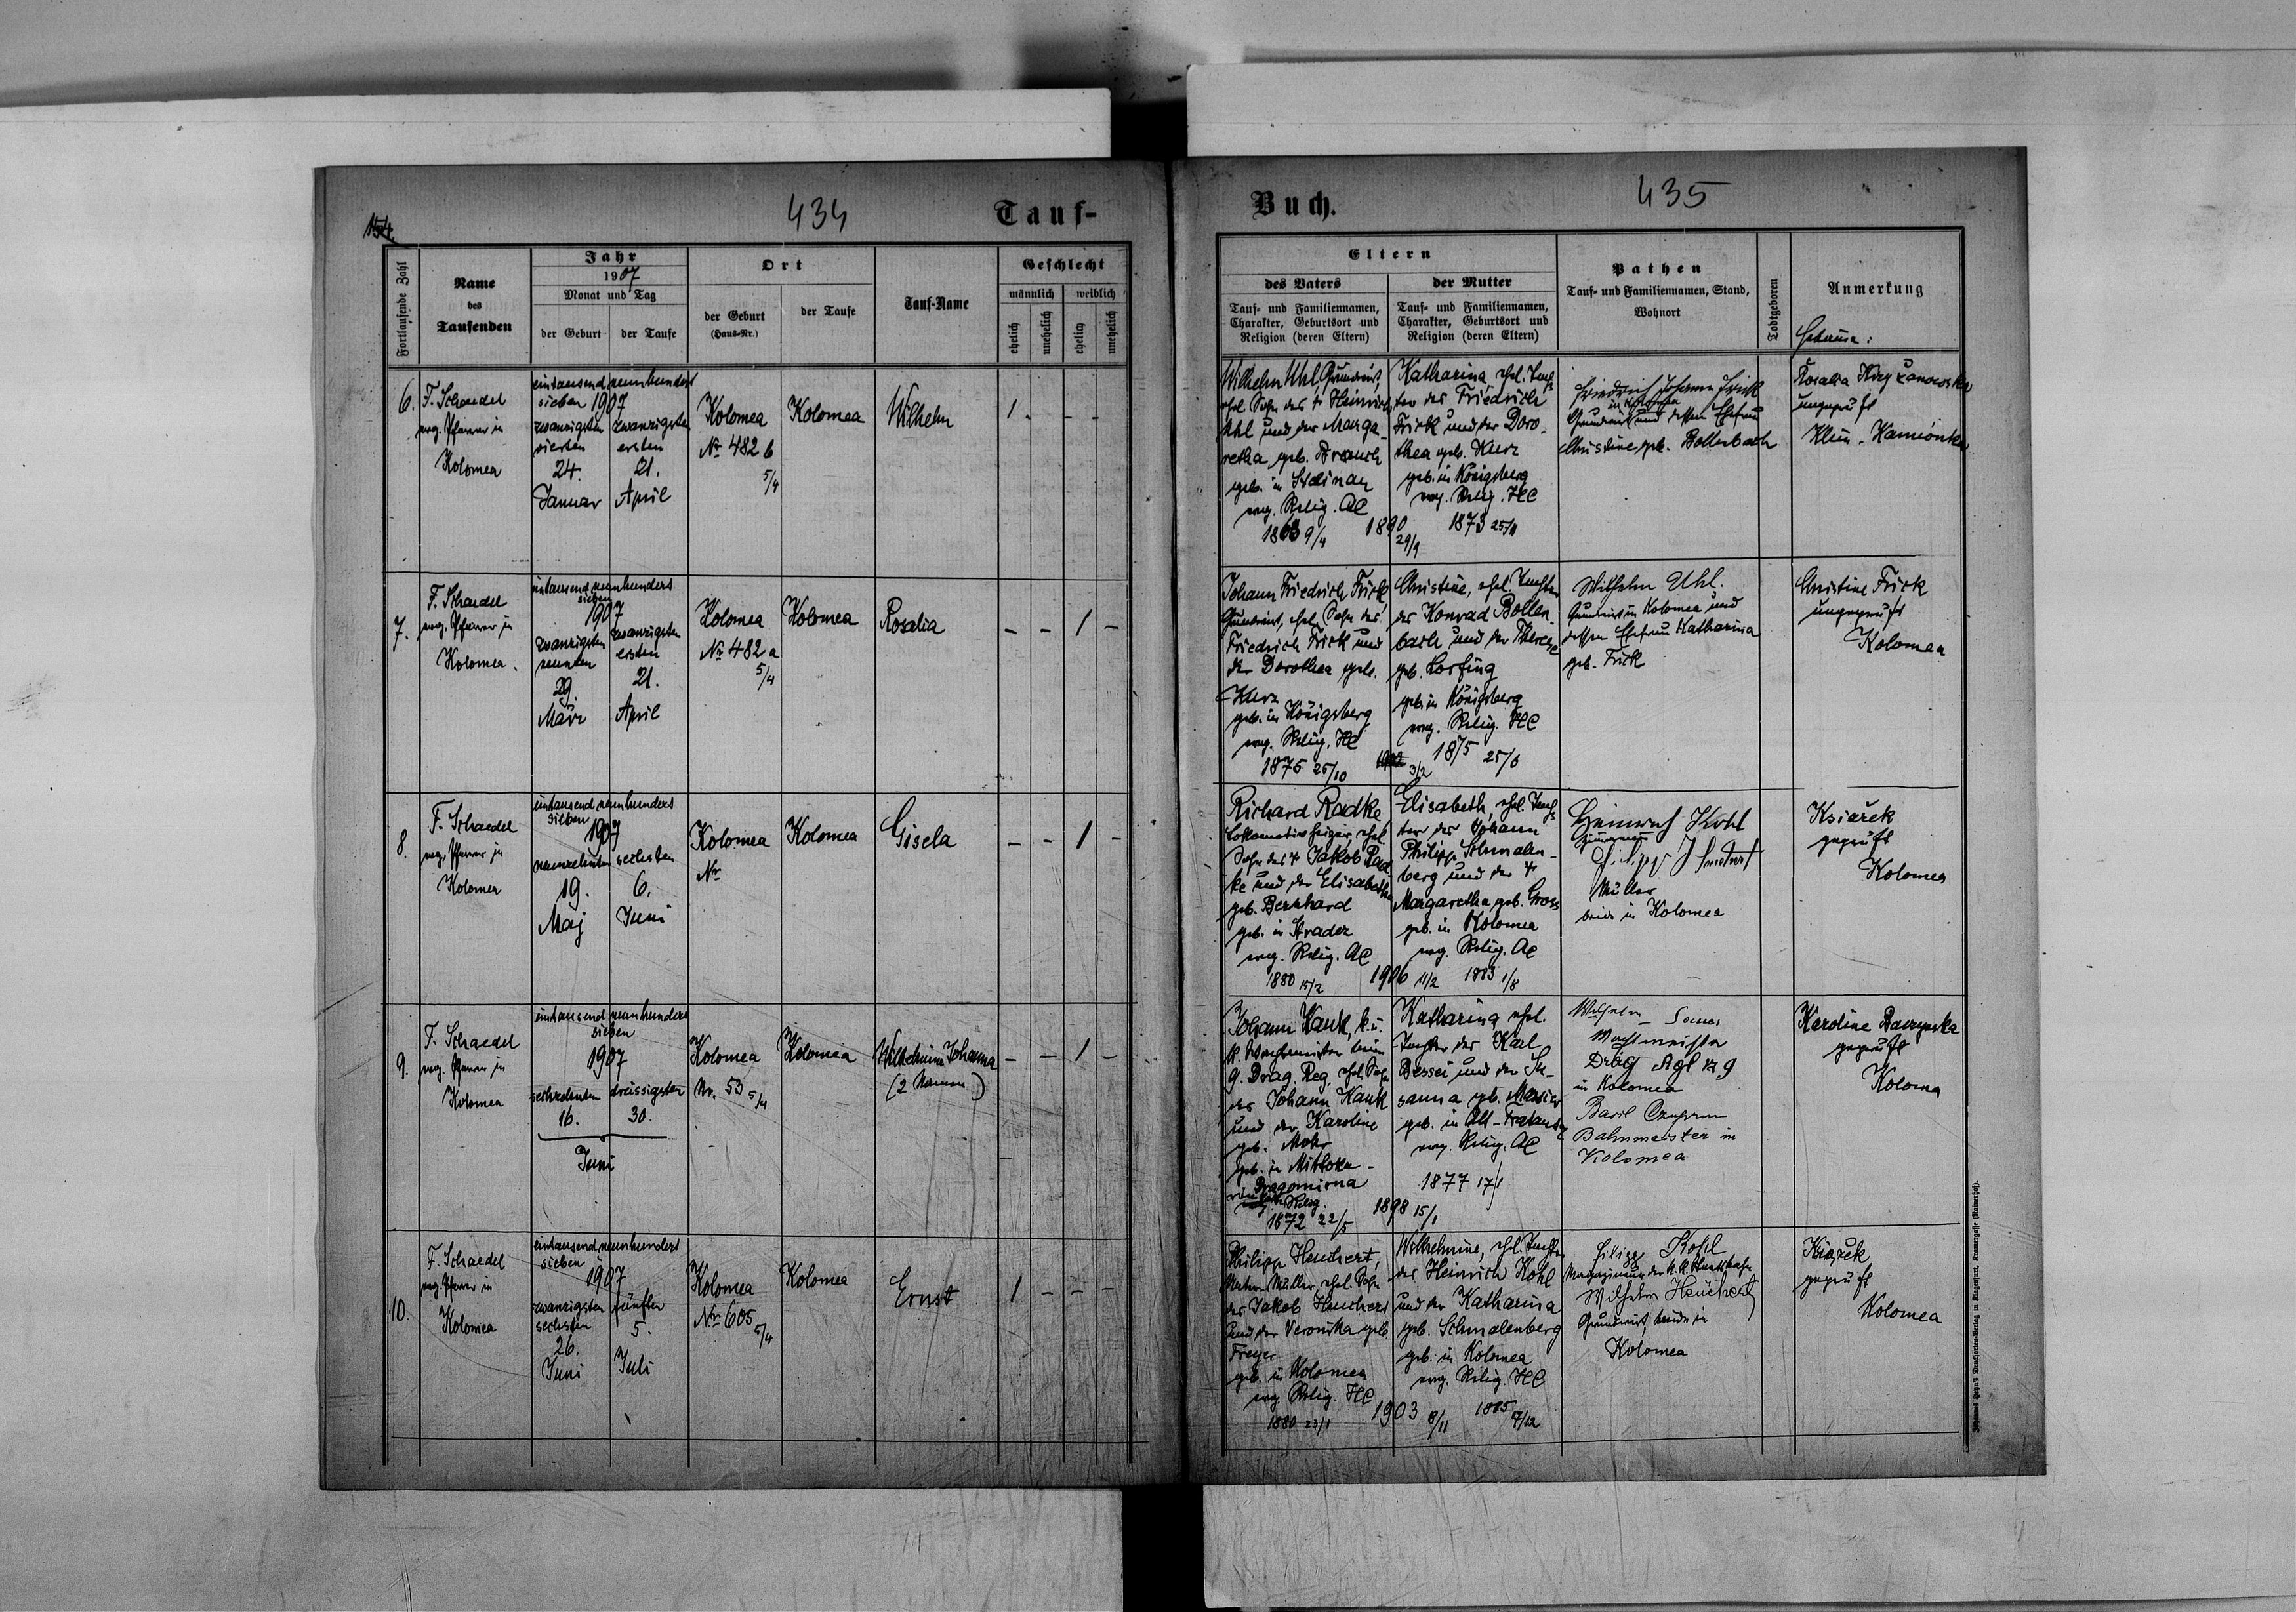 434
Tauf-
154.
Fortlaufende Zahl
Name
des
Taufenden
Jahr
1907
Monat und Tag
der Geburt
der Taufe
Ort
der Geburt
(Haus-Nr.)
der Taufe
Tauf-Name
Geschlecht
männlich
weiblich
ehelich
unehelich
ehelich
unehelich
6.
F. Schaedel
evg. Pfarrer in
Kolomea
eintausend neunhundert
sieben 1907
zwanzigsten
vierten
24.
Januar
zwanzigsten
ersten
21.
April
Kolomea
Nr 482 b
5/4
Kolomea
Wilhelm
1 - - -
7.
F. Schaedel
evg. Pfarrer in
Kolomea.
eintausend neunhundert
sieben
1907
zwanzigsten
neunten
29.
März
zwanzigsten
ersten
21.
April
Kolomea
Nr 482 a
5/4
Kolomea
Rosalia
- - 1 -
8.
F. Schaedel
evg. Pfarrer in
Kolomea
eintausend neunhundert
sieben
1907
neunzehnten
19.
Maj
sechsten
6.
Juni
Kolomea
Nr
Kolomea
Gisela
- - 1 -
9.
F. Schaedel
evg. Pfarrer in
Kolomea
eintausend neunhundert
sieben
1907
sechzehnten
16.
dreissigsten
30.
Juni
Kolomea
Nr. 53 5/4
Kolomea
Wilhelmine Johanna
(2 Namen)
- - 1 -
10.
F. Schaedel
evg. Pfarrer in
Kolomea
eintausend neunhundert
sieben
1907
zwanzigsten
sechsten
26.
Juni
fünften
5.
Juli
Kolomea
Nr 605
5/4
Kolomea
Ernst
1 - - -
Buch.
435
Eltern
des Vaters
Tauf- und Familiennamen,
Charakter, Geburtsort und
Religion (deren Eltern)
der Mutter
Tauf- und Familiennamen,
Charakter, Geburtsort und
Religion (deren Eltern)
Pathen
Tauf- und Familiennamen, Stand,
Wohnort
Todtgeboren
Anmerkung
Hebamme:
Wilhelm Uhl, Grundwirt,
ehel. Sohn des † Heinrich
Uhl und der Marga-
retha geb.
geb. in
evg. Relig. AC
1863 9/4
1890
29/9
Katharina, ehel. Toch-
ter des Friedrich
Frick und der Doro-
thea geb. Kurz
geb. in Königsberg
evg. Relig. HC
1873 25/11
Friedrich Johann Frick
in Kolomea
Grundwirt und dessen Ehefrau
Christine geb. Bollenbach
Rosalia
ungeprüft
Klein-Kamionka
Johann Friedrich Frick
Grundwirt, ehel. Sohn des
Friedrich Frick und
der Dorothea geb.
Kurz
geb. in Königsberg
evg. Relig. HC
1875 25/10
3/2
Christine, ehel. Tochter
des Konrad Bollen-
bach und der Therese
geb.
geb. in Königsberg
evg. Relig. HC
1875 25/6
Wilhelm Uhl.
Grundwirt in Kolomea und
dessen Ehefrau Katharina
geb. Frick
Christine Frick
ungeprüft
Kolomea
Richard Radke
Lokomotivheizer, ehel.
Sohn des † Jakob Rad-
ke und der Elisabetha
geb. Bernhard
geb. in
evg. Relig. AC
1880 15/2
1906 11/2
Elisabeth, ehel. Toch-
ter des Johann
Philipp Schmalen-
berg und der †
Margaretha geb. Gross
geb. in Kolomea
evg. Relig. AC
1883 1/8
Heinrich Kohl
Müller
beide in Kolomea
Ksiażek
geprüft
Kolomea
Johann Hauk, k. u.
k. Wachtmeister beim
9. Drag. Reg. ehel. Sohn
des Johann Hauk
und der Karoline
geb. Mohr
geb. in Mittoka-
Dragomirna
Relig.
1872 22/5
1898 15/1
Katharina ehel.
Tochter des Karl
Bessei und der Su-
sanna geb.
geb. in Alt-Fratautz
evg. Relig. AC
1877 17/1
Wilhelm
Wachtmeister
Drag Rgt Nr 9
in Kolomea
Basil
Bahnmeister in
Kolomea
Karoline
geprüft
Kolomea
Philipp Heuchert,
Müller, ehel. Sohn
des Jakob Heuchert
und der Veronika geb.
Freyer
geb. in Kolomea
evg. Relig. HC
1880 23/1
1903 8/11
Wilhelmine, ehel. Tochter
des Heinrich Kohl
und der Katharina
geb. Schmalenberg
geb. in Kolomea
evg. Relig. HC
1885 7/12
Filipp Kohl
Magazineur der k.k. Staatsbahn
Wilhelm Heuchert
Grundwirt, beide in
Kolomea
Ksiażek
geprüft
Kolomea